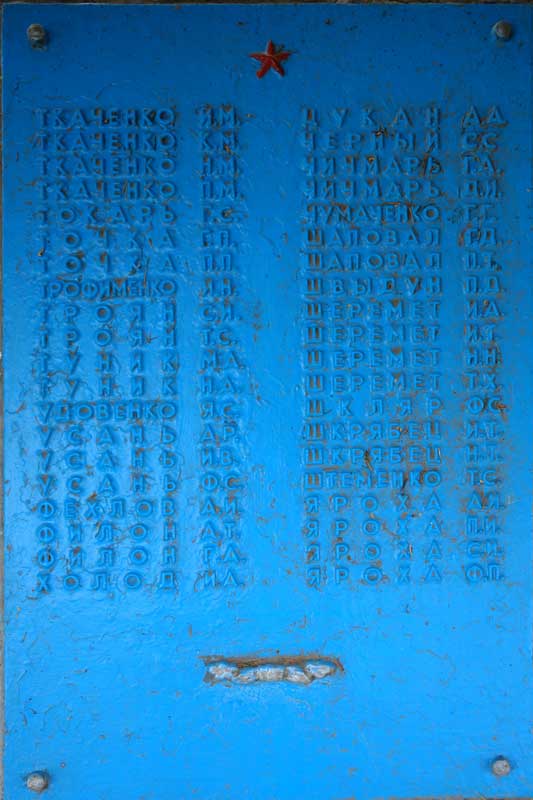 ТКАЧЕНКО Я.М.
ТКАЧЕНКО К.М.
ТКАЧЕНКО Н.М.
ТКАЧЕНКО П.М.
ТОКАРЬ Г.С.
ТОЧКА
ТОЧКА П.П.
ТРОФИМЕНКО Я.Н.
ТРОЯН С.И.
ТРОЯН Т.С.
ТУНИК М.Д.
ТУНИК Н.Д.
УДОВЕНКО Я.С.
УСАНЬ А.Р.
УСАНЬ И.В.
УСАНЬ Ф.С.
ФЕХЛОВ А.И.
ФИЛОН А.Т.
ФИЛОН Г.Д.
ХОЛОД И.Д.
ЦУКАН А.Д.
ЧЕРНЫЙ С.С.
ЧИЧМАРЬ Г.А.
ЧИЧМАРЬ Д.Я.
ЧУМАЧЕНКО Т.Т.
ШАПОВАЛ Г.Д.
ШАПОВАЛ
ШВЫДУН П.Д.
ШЕРЕМЕТ И.Д.
ШЕРЕМЕТ И.Т.
ШЕРЕМЕТ Н.Н.
ШЕРЕМЕТ Т.Х.
ШКЛЯР Ф.С.
ШКРЯБЕЦ И.Т.
ШКРЯБЕЦ Н.Т.
ШТЕМЕНКО Т.С.
ЯРОХА Д.И.
ЯРОХА П.И.
ЯРОХА С.И.
ЯРОХА Ф.П.